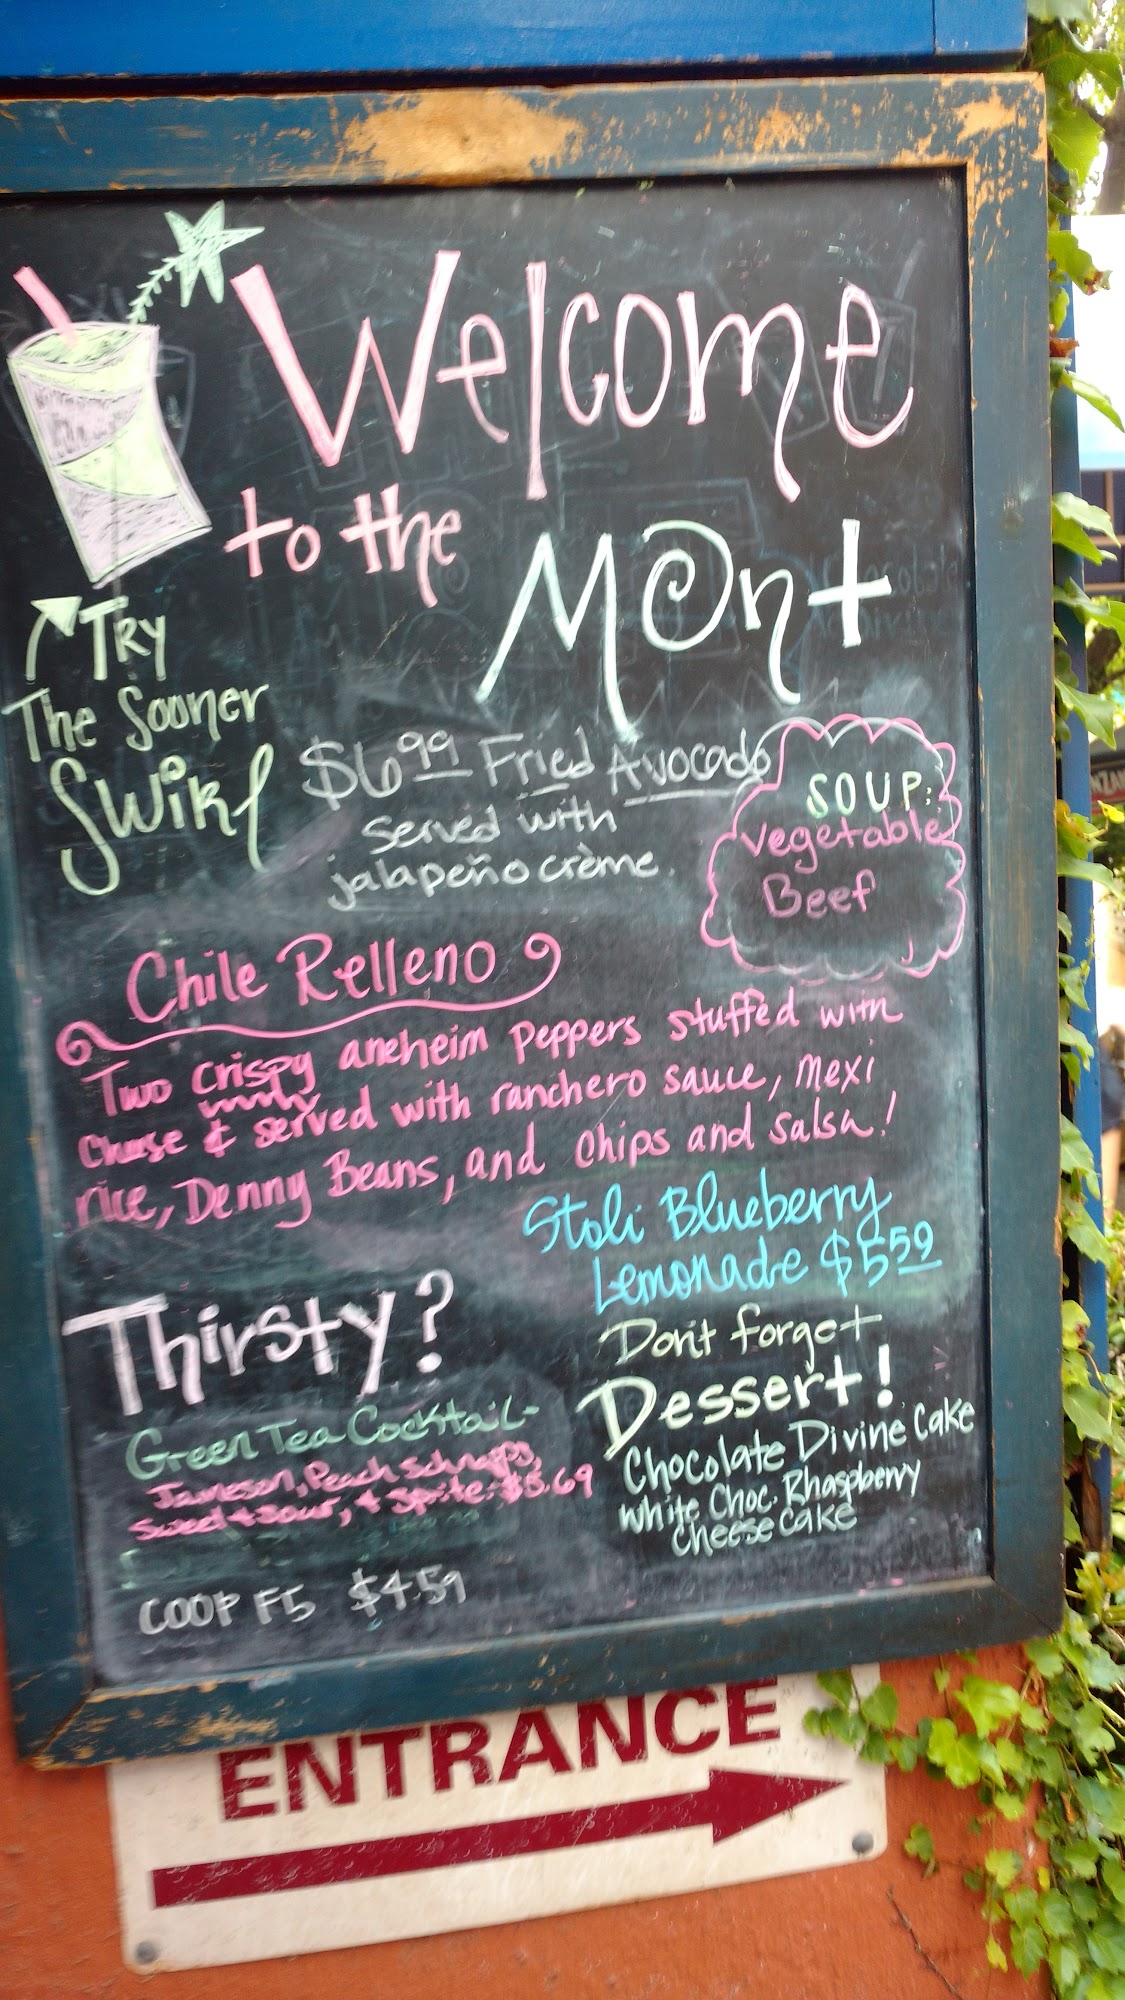 Welcome
to the
Mont
Try
The Sooner
Swirl
$6.99 Fried Avocado
served with
jalapeño crème.
SOUP:
Vegetable
Beef
Chile Relleno
Two crispy aneheim peppers stuffed with
chesse & served with ranchero sauce, mexi
rice, Denny Beans, and chips and salsa!
Stoli Blueberry
Lemonade $5.59
Thirsty?
Green Tea Cocktail-
Jameson, Peach Schnapps,
Sweet & Sour, & Sprite:
COOP F5 $4.59
Don't forget
Dessert!
Chocolate Divine Cake
White Choc. Rhaspberry
Cheesecake
ENTRANCE